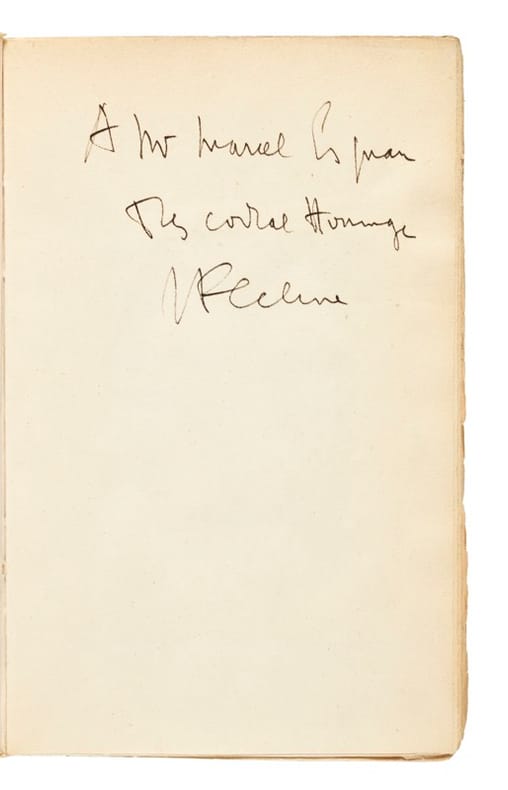 A Mr Marcel
Très cordial Hommage
LFCeline